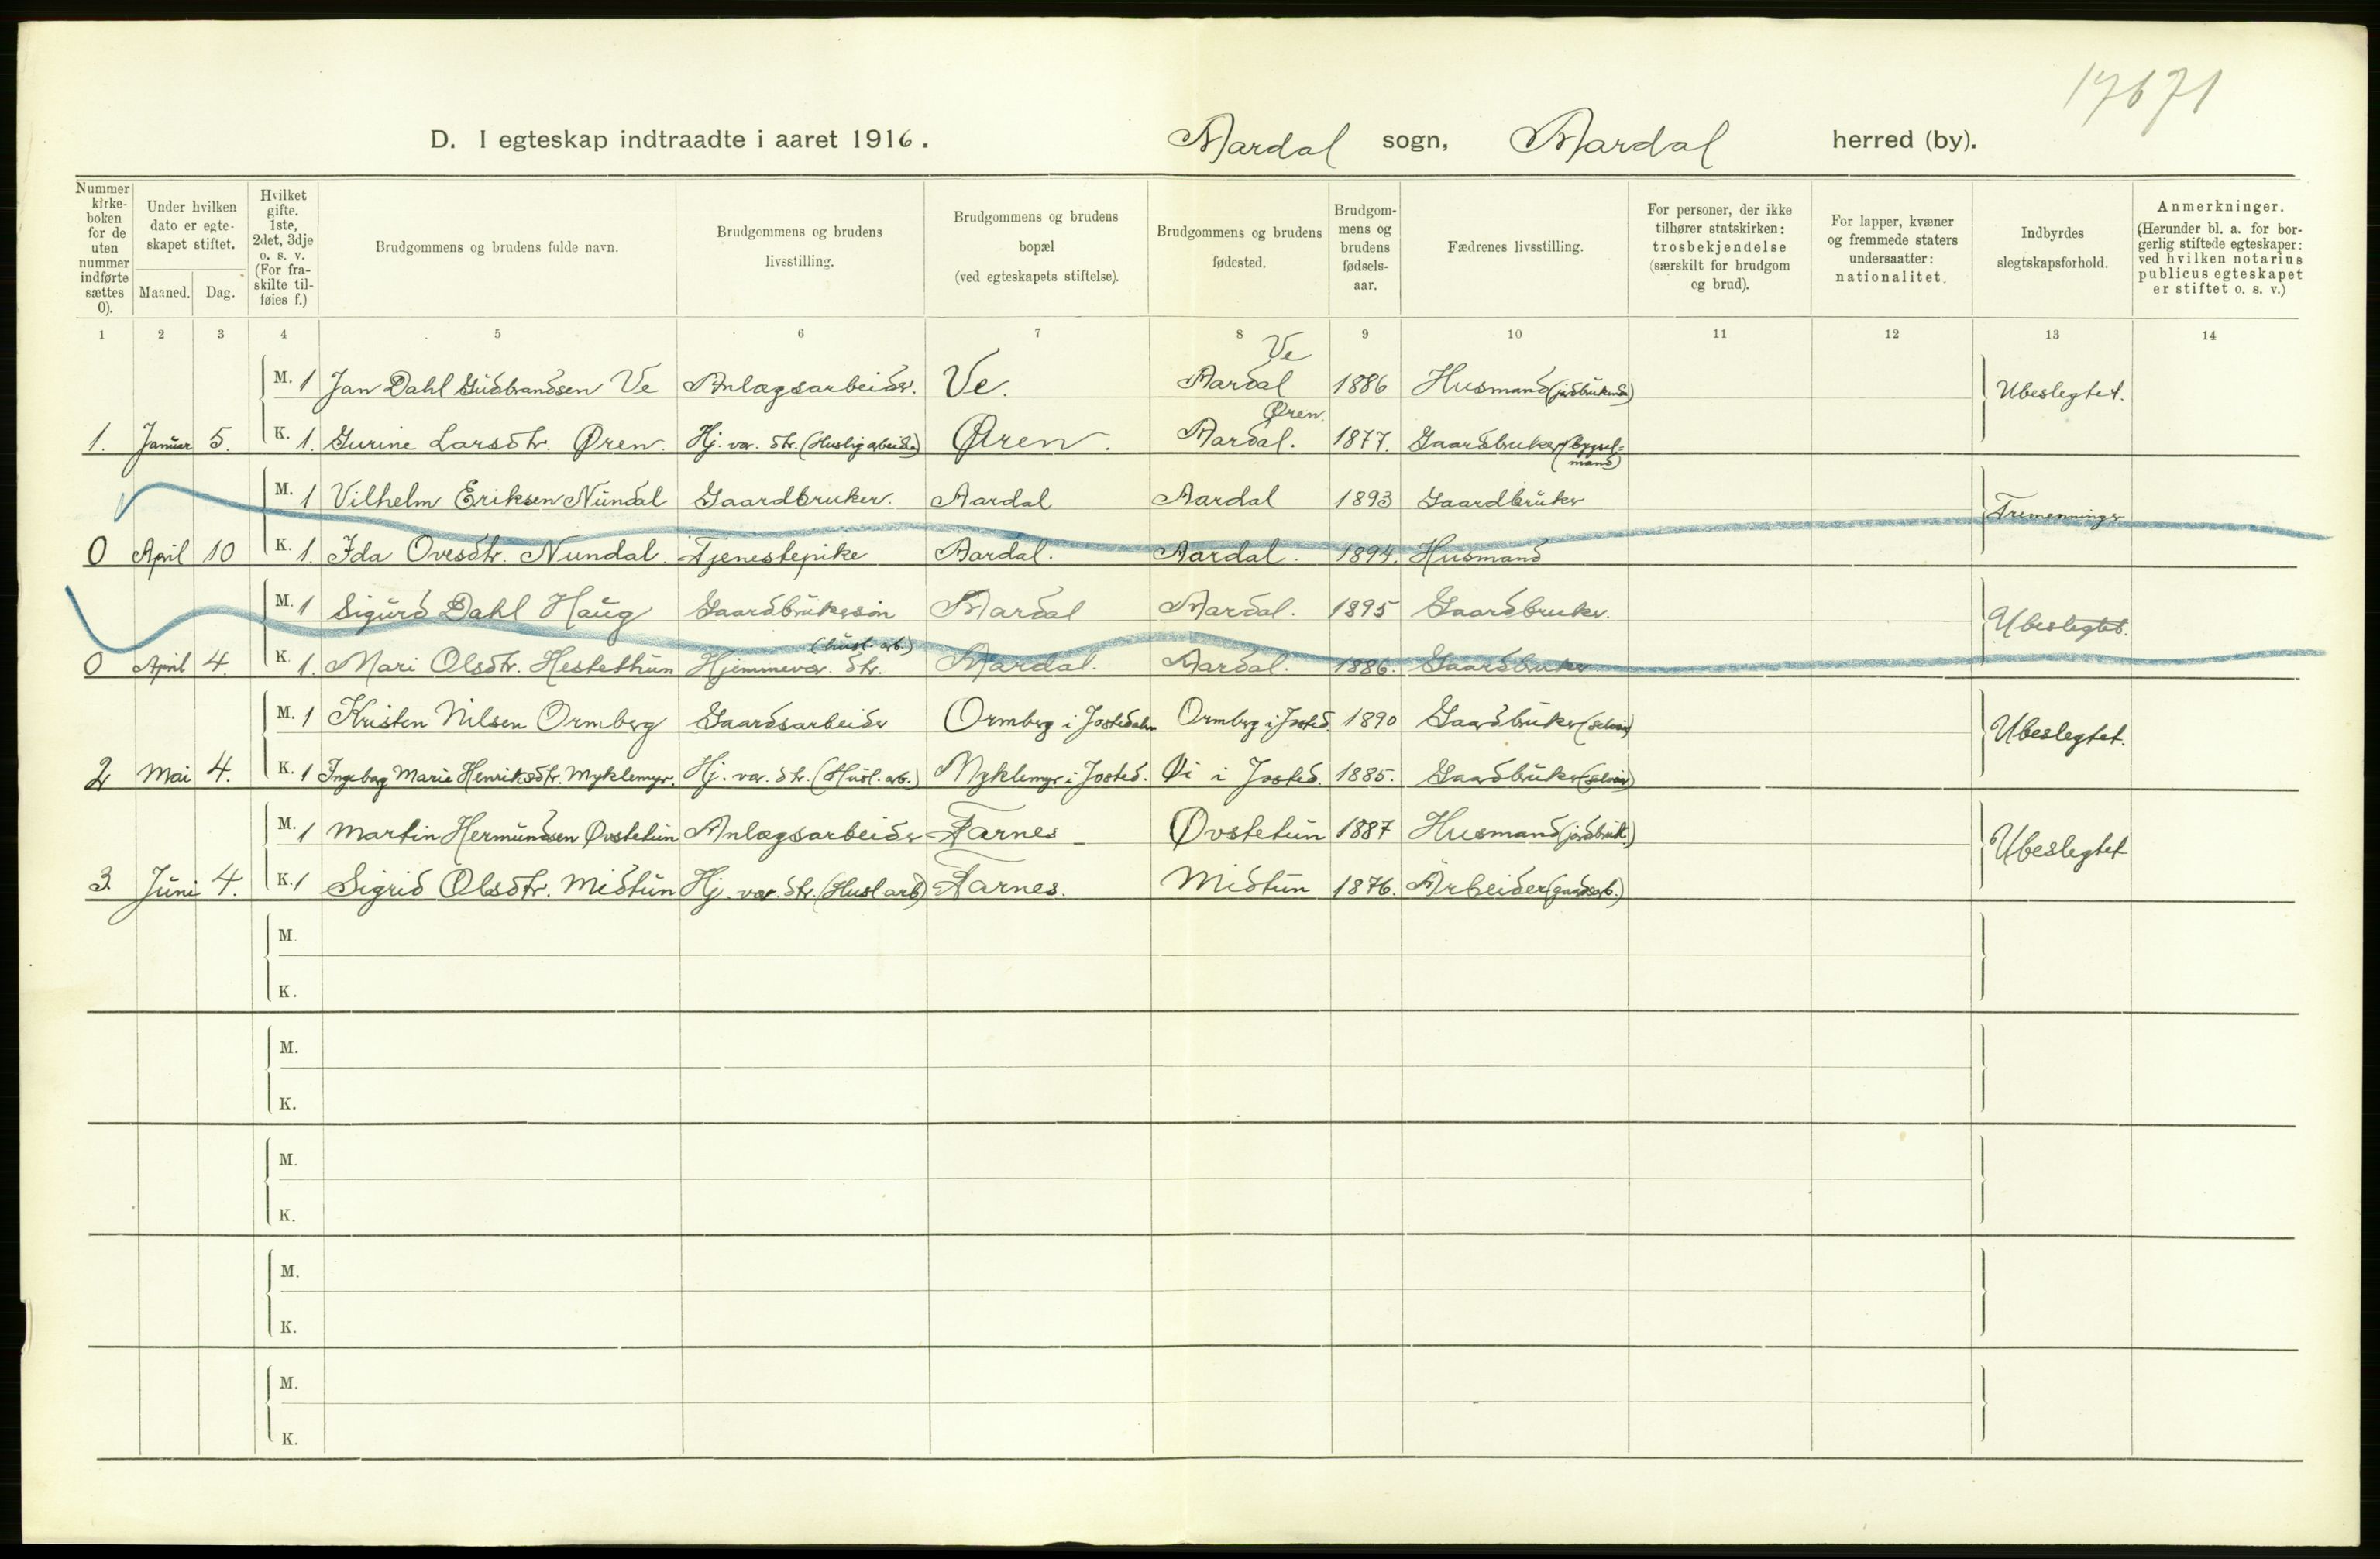 17671
D. I egteskap indtraadte i aaret 1916. Aardal sogn, Aardal herred (by).
Nummer kirke-boken for de uten nummer indførte sættes 0). | Under hvilken dato er egte-skapet stiftet. Maaned. Dag. | Hvilket gifte. 1ste, 2det, 3dje o. s. v. (For fra-skilte til-føies f.) | Brudgommens og brudens fulde navn. | Brudgommens og brudens livsstilling. | Brudgommens og brudens bopæl (ved egteskapets stiftelse). | Brudgommens og brudens fødested. | Brudgom-mens og brudens fødsels-aar. | Fædrenes livsstilling. | For personer, der ikke tilhører statskirken: trosbekjendelse (særskilt for brudgom og brud). | For lapper, kvæner og fremmede staters undersaatter: nationalitet. | Indbyrdes slegtskapsforhold. | Anmerkninger. (Herunder bl. a. for bor-gerlig stiftede egteskaper: ved hvilken notarius publicus egteskapet er stiftet o. s. v.)
1 2 3 4 5 6 7 8 9 10 11 12 13 14
M. 1 Jan Dahl Gudbrandsen Ve Anlægsarbeider. Ve. Ve Aardal 1886 Husmand (jordbruker) Ubeslegtet.
1. Januar 5. K. 1. Gurine Larsdtr. Øren. Hj. vær. dtr. (Huslig arbeide) Øren. Øren. Aardal. 1877. Gaardbruker (bygsel-mand)
M. 1 Vilhelm Eriksen Nundal Gaardbruker. Aardal Aardal 1893 Gaardbruker Tremenninger
0 April 10 K. 1. Ida Ovesdtr. Nundal. Tjenestepike Aardal. Aardal. 1894. Husmand
M. 1 Sigurd Dahl Haug Gaardbrukersøn Aardal Aardal. 1895 Gaardbruker. Ubeslegtet.
0 April 4. K. 1. Mari Olsdtr. Hestethun Hjemmevær. dtr. (husl. arb.) Aardal. Aardal. 1886. Gaardbruker
M. 1 Kristen Nilsen Ormberg Gaardsarbeider Ormberg i Jostedalen Ormberg i Josted. 1890 Gaardbruker (selveier) Ubeslegtet.
2 Mai 4. K. 1 Ingeborg Marie Henriksdtr. Myklemyr. Hj. vær. dtr. (Husl. arb.) Myklemyr i Josted. Øi i Josted. 1885. Gaardbruker (selveier)
M. 1 Martin Hermundsen Øvstetun Anlægsarbeider Farnes Øvstetun 1887 Husmand (jordbruk.) Ubeslegtet
3. Juni 4. K. 1 Sigrid Olsdtr. Midtun Hj. vær. dtr. (Husl arb) Farnes. Midtun 1876. Arbeider (gaardsarb.)
M.
K.
M.
K.
M.
K.
M.
K.
M.
K.